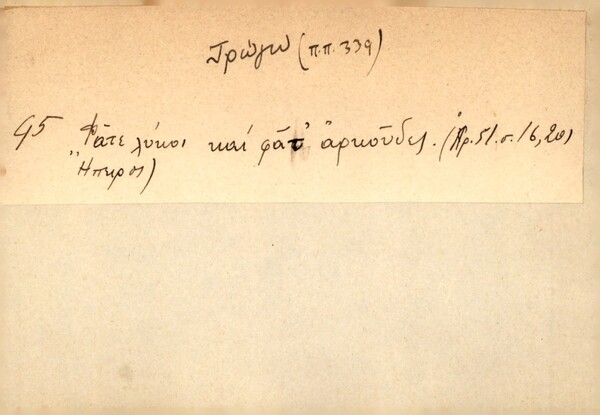 Τρώγω (π.π. 339)
95 Φᾶτε λύκοι καὶ φᾶτ' ἀρκοῦδες. (Ἀρ. 51. σ. 16, 201
Ἤπειρος)